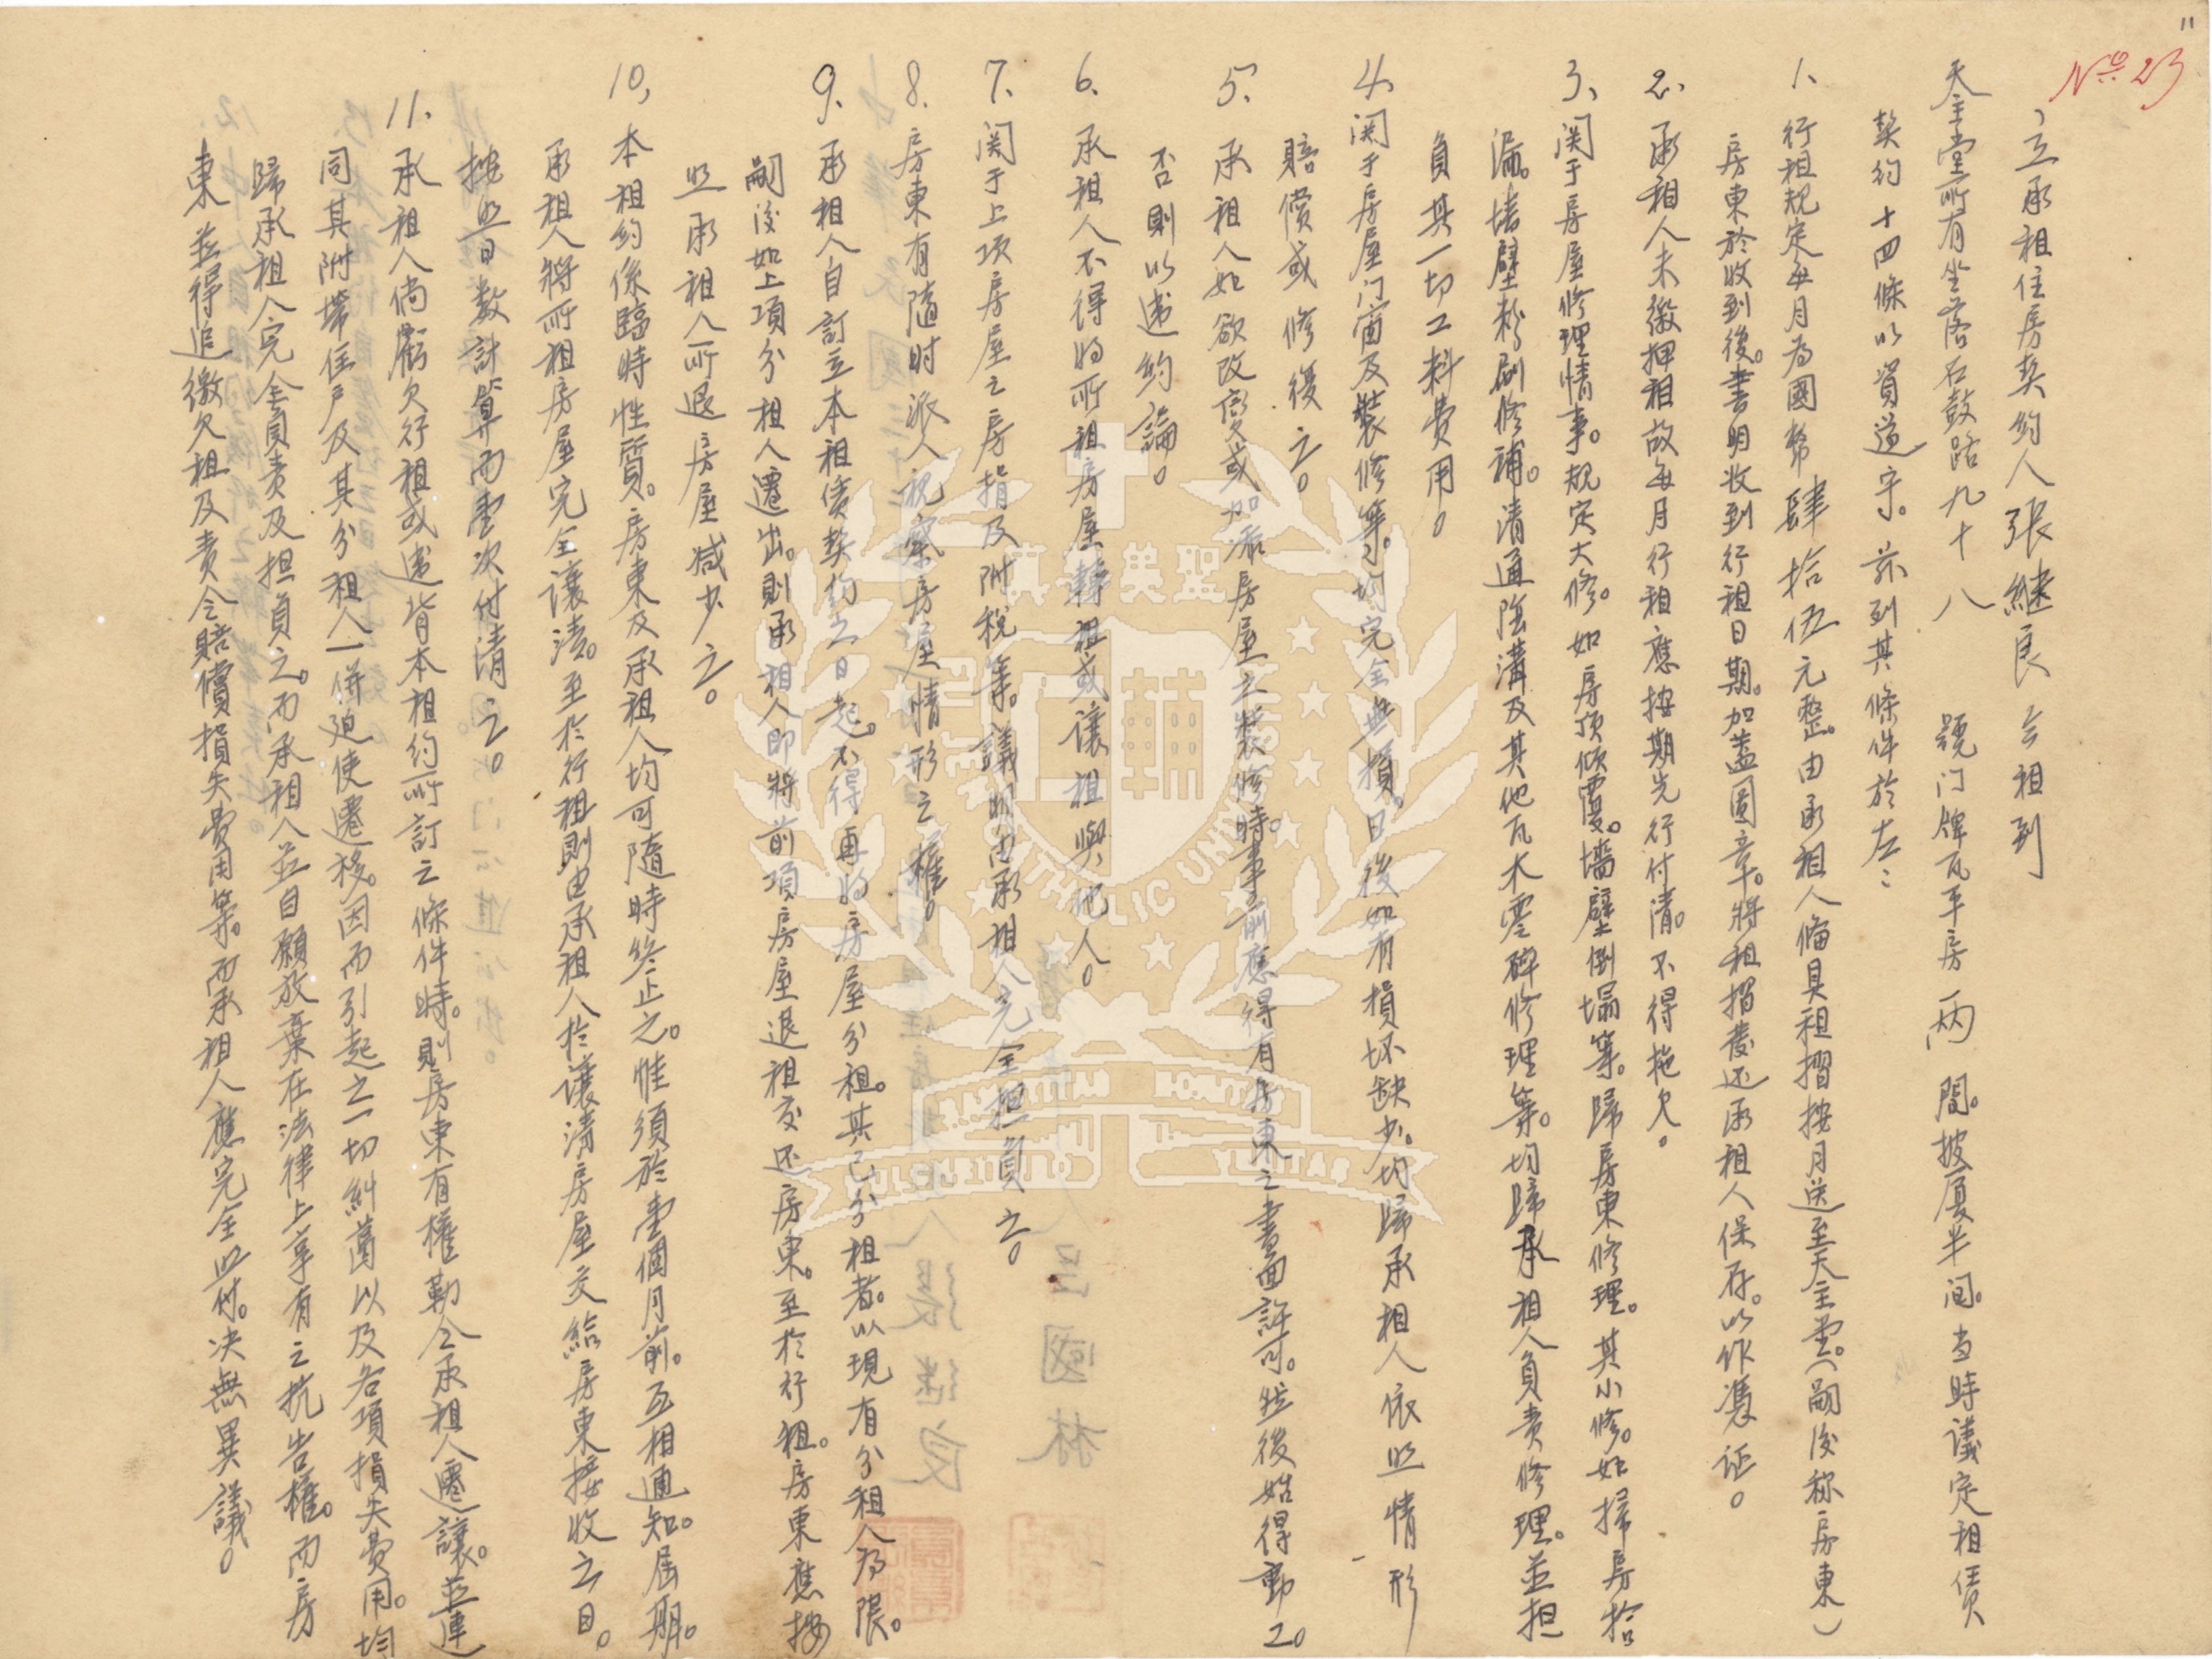 11
No 23
立承租住房契約人張継良 今租到
天主堂所有坐落石鼓路九十八 號门牌瓦平房 兩 間。披厦半间。当時議定租賃
契約十四條以資遵守。茲列其條件於左：
1、行租規定每月為國幣肆拾伍元整。由承租人俻具租摺按月送至天主堂。（嗣後称房東）
房東於收到後。書明收到行租日期。加蓋圖章。將租摺發还承租人保存。以作憑证。
2、承租人未繳押租故每月行租應按期先行付清。不得拖欠。
3、関于房屋修理情事。規定大修。如房頂傾覆。墻壁倒塌等。歸房東修理。其小修。如掃房拾
漏。墙壁粉刷修補。清通陰溝及其他瓦木零碎修理等。均歸承租人負责修理。並担
負其一切工料費用。
4、関于房屋门窗及裝修等。均完全無損。日後如有損坏缺少。均歸承租人依照情形
賠償或修復之。
5、承租人如欲改變或加添房屋之裝修時。事前應得有房東之書面許可。然後始得動工。
否則以违約論。
6、承租人不得将所租房屋轉租或讓租與他人。
7、関于上項房屋之房捐及附稅等。議明由承租人完全担負之。
8、房東有隨时派人視察房屋情形之權。
9、承租人自訂立本租賃契約之日起。不得再将房屋分租。其已分租者。以現有分租人為限。
嗣後如上項分租人遷出。則承租人即將前項房屋退租交还房東。至於行租。房東應按
照承租人所退房屋减少之。
10、本租約係臨時性質。房東及承租人均可隨時終止之。惟須於壹個月前。互相通知。屆期。
承租人將所租房屋完全讓清。至於行租則由承租人於讓清房屋交給房東接收之日。
按照日数計算而壹次付清之。
11、承租人倘虧欠行租或违背本租約所訂之條件時。則房東有權勒令承租人遷讓。並連
同其附帶住户及其分租人一併廹使遷移。因而引起之一切糾葛以及各項損失費用。均
歸承租人完全負责及担負之。而承租人並自願放棄在法律上享有之抗告權。而房
東並得追繳欠租及责令賠償損失費用等。而承租人應完全照付。决無異議。
真善美聖